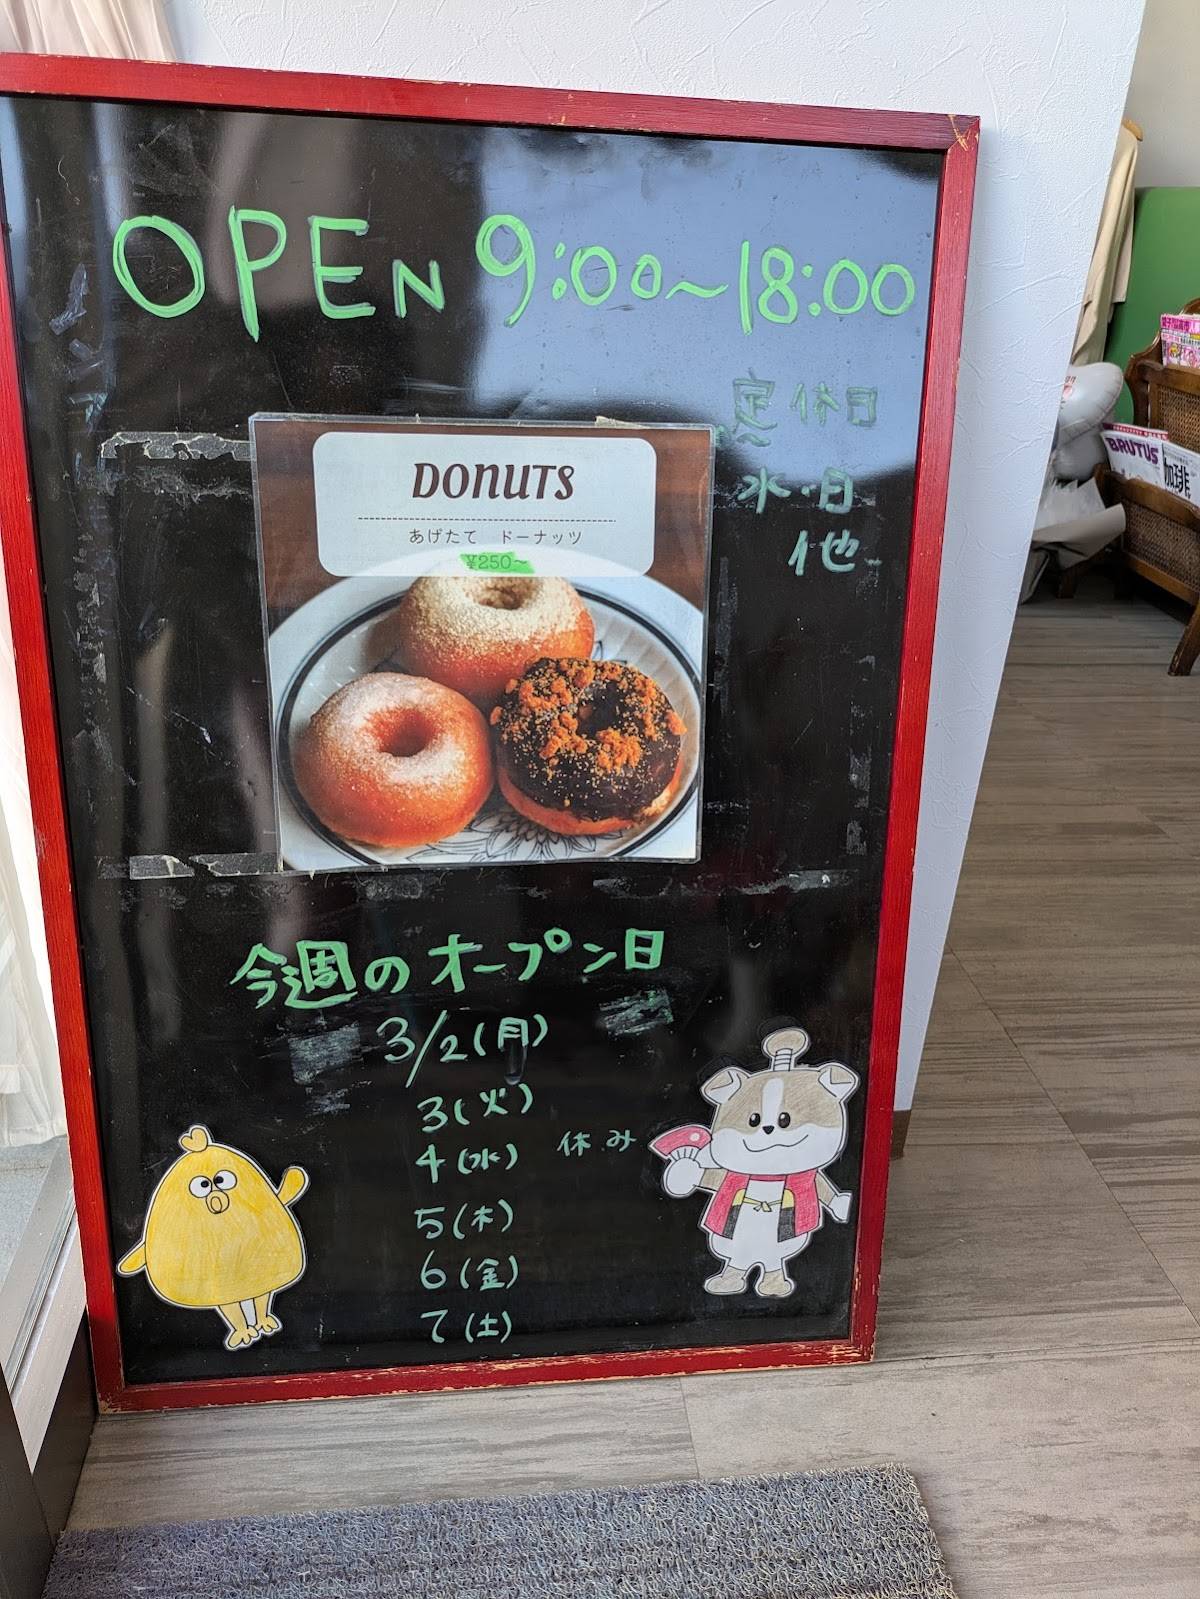 OPEN 9:00~18:00
定休日
水・日
他
DONUTS
あげたて ドーナッツ
¥250~
今週のオープン日
3/2(月)
3(火)
4(水) 休み
5(木)
6(金)
7(土)
BRUTUS
珈琲